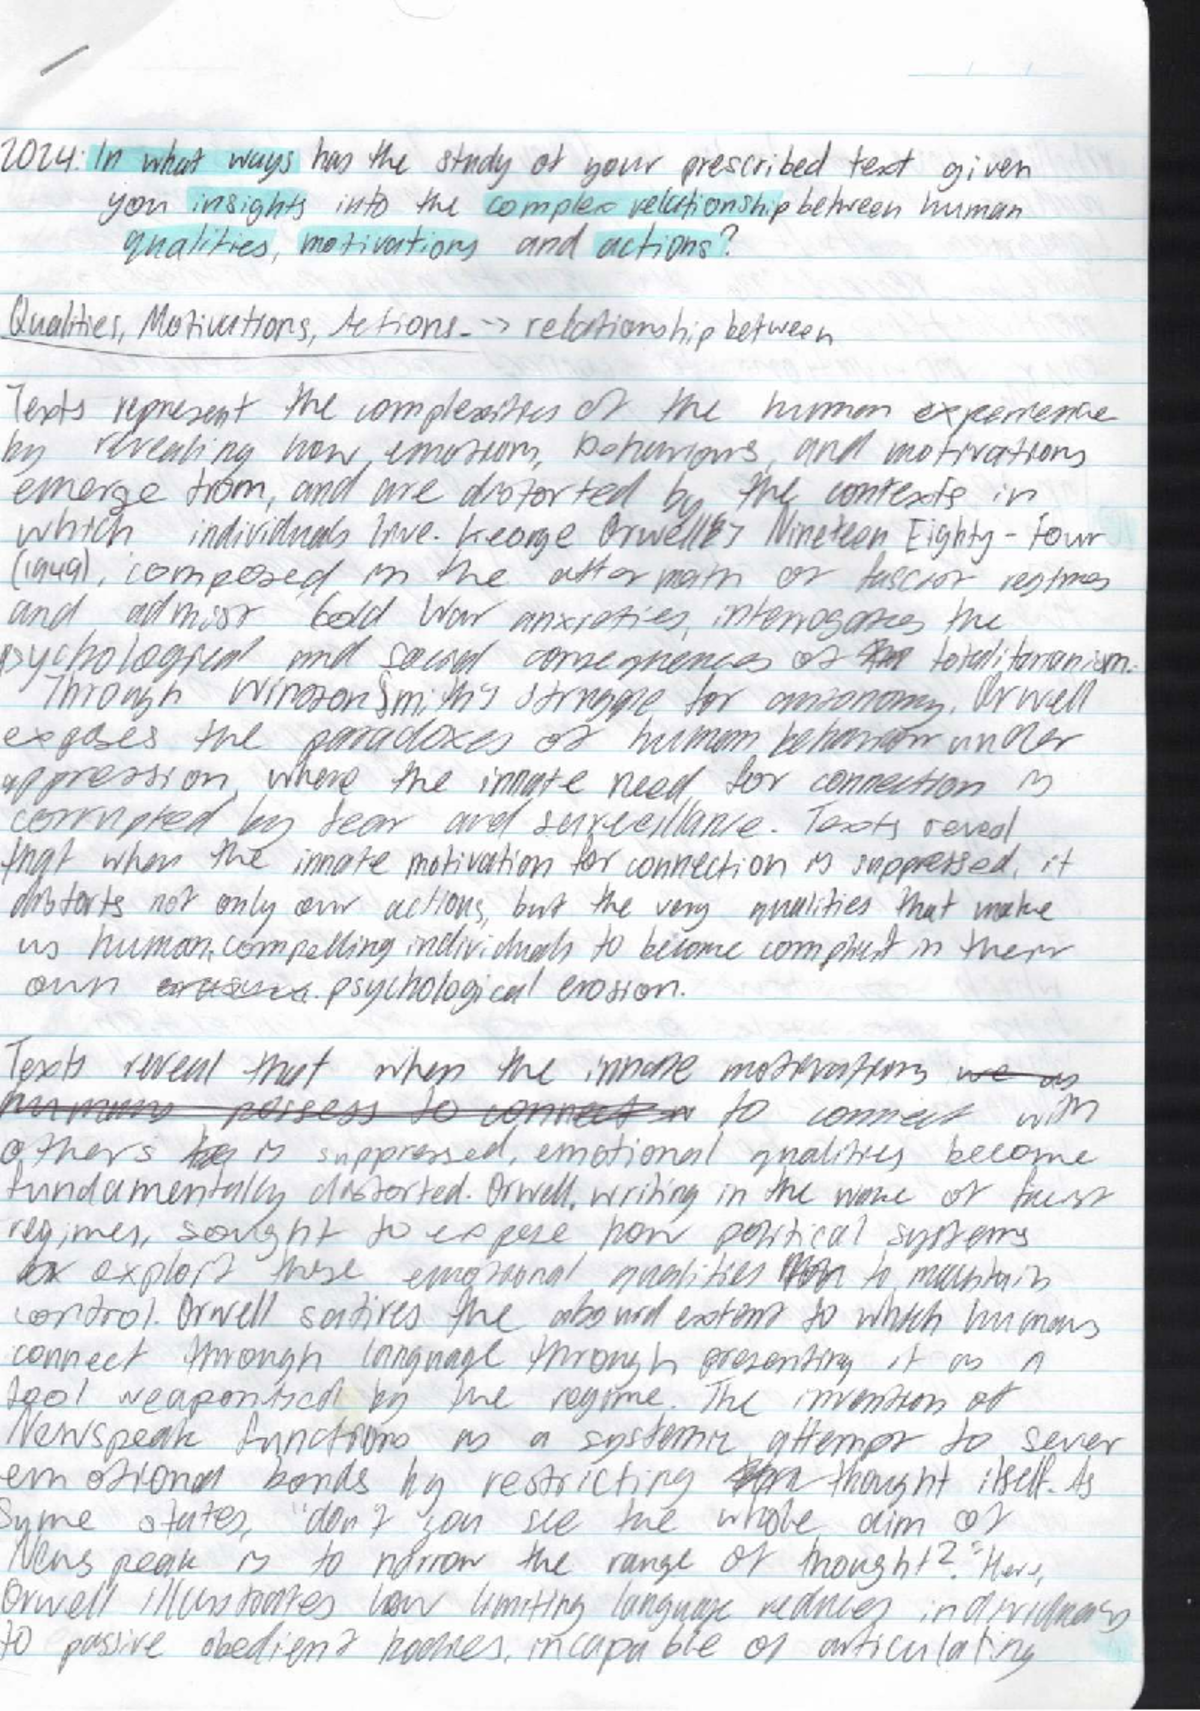 2024: In what ways has the study of your prescribed text given
you insights into the complex relationship between human
qualities, motivations and actions?
Qualities, Motivations, Actions → relationship between
Texts represent the complexities of the human experience
by revealing how emotions, behaviours, and motivations
emerge from, and are distorted by the contexts in
which individuals live. George Orwell's Nineteen Eighty-Four
(1949), composed in the aftermath of fascist regimes
and admist Cold War anxieties, interrogates the
psychological and social consequences of totalitarianism.
Through Winston Smith's struggle for autonomy, Orwell
exposes the paradoxes of human behaviour under
oppression, where the innate need for connection is
corrupted by fear and surveillance. Texts reveal
that when the innate motivation for connection is suppressed, it
distorts not only our actions, but the very qualities that make
us human, compelling individuals to become complicit in their
own psychological erosion.
Texts reveal that when the innate motivations we as
humans possess to connect to connect with
others is suppressed, emotional qualities become
fundamentally distorted. Orwell, writing in the wake of facist
regimes, sought to expose how political systems
exploit these emotional qualities to maintain
control. Orwell satires the absurd extent to which humans
connect through language through presenting it as a
tool weaponised by the regime. The invention of
Newspeak functions as a systemic attempt to sever
emotional bonds by restricting thought itself. As
Syme states, "don't you see the whole aim of
Newspeak is to narrow the range of thought?" Here,
Orwell illustrates how limiting language reduces individuals
to passive obedient bodies, incapable of articulating